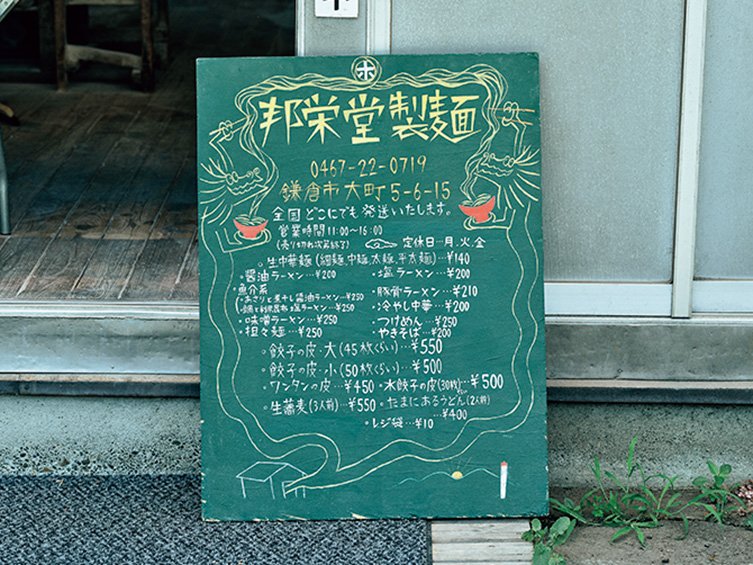 ホ
邦栄堂製麺
0467-22-0719
鎌倉市大町5-6-15
全国どこにでも発送いたします。
営業時間11:00〜16:00
(売り切れ次第終了) 定休日…月、火、金
。生中華麺(細麺,中麺,太麺,平太麺)…¥140
・醤油ラーメン…¥200 ・塩ラーメン…¥200
・魚介系 ・豚骨ラーメン…¥210
(・あさりと煮干し醤油ラーメン…¥250 ・冷やし中華…¥200
塩ラーメン…¥250
・味噌ラーメン…¥250 ・つけめん…¥250
・担々麺…¥250 ・やきそば…¥200
・餃子の皮・大(45枚くらい)…¥550
・餃子の皮・小(50枚くらい)…¥500
・ワンタンの皮…¥450 ・水餃子の皮(30枚)…¥500
・生蕎麦(3人前)…¥550 ・たまにあるうどん(2人前)
…¥400
・レジ袋…¥10